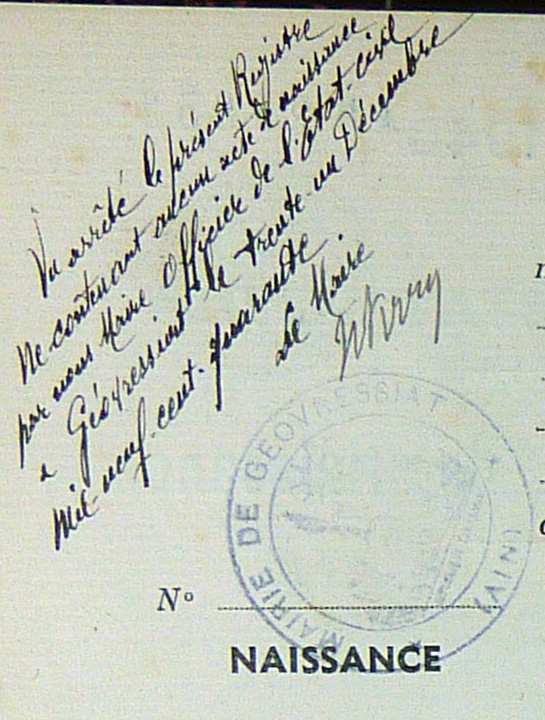 Vu arrêté le présent Registre
ne contenant aucun acte de naissance
par nous Maire Officier de l'Etat-civil
a Géovressiat le trente-un Décembre
mil-neuf-cent-quarante.
Le Maire
MAIRIE DE GEOVRESSIAT
(AIN)
No
NAISSANCE